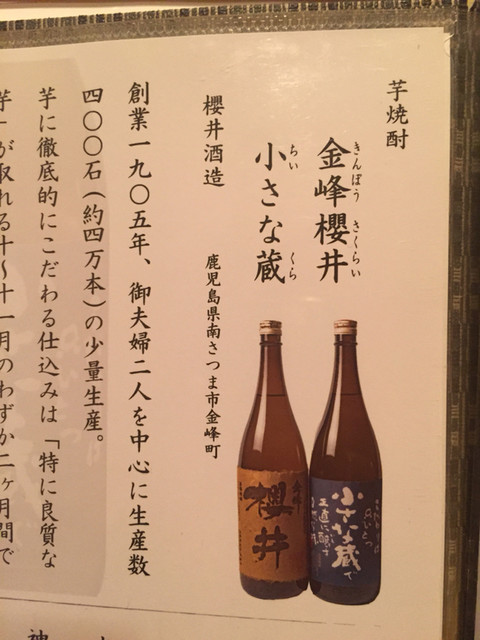 芋焼酎
金峰櫻井
きんぽう さくらい
小さな蔵
ちい くら
櫻井酒造
鹿児島県南さつま市金峰町
創業一九〇五年、御夫婦二人を中心に生産数
四〇〇石(約四万本)の少量生産。
芋に徹底的にこだわる仕込みは「特に良質な
芋」が取れる十~十一月のわずか二ヶ月間で
金峰
櫻井
小さな蔵で
正直に醸す
神